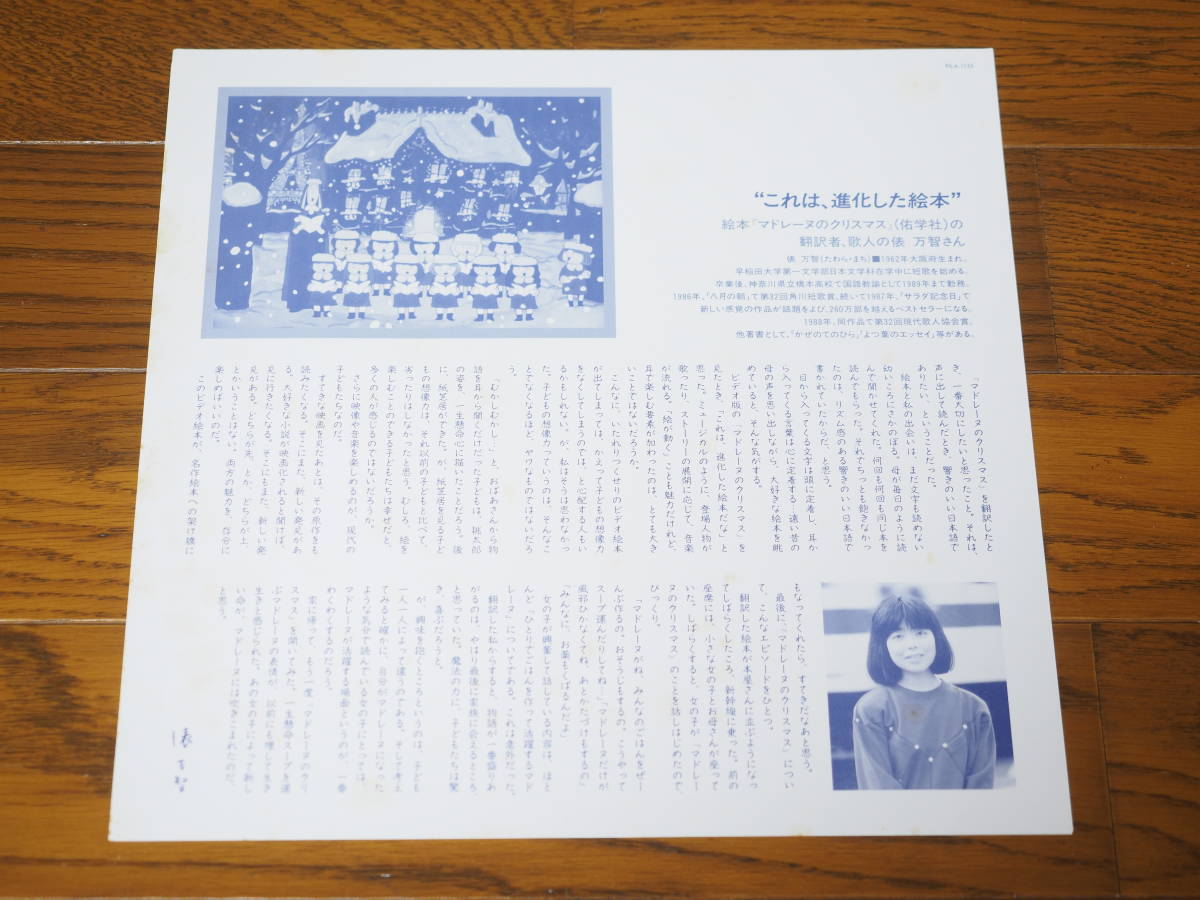 “これは、進化した絵本”
絵本『マドレーヌのクリスマス』(佑学社)の
翻訳者、歌人の俵 万智さん
俵 万智(たわら・まち)■1962年大阪府生まれ。
早稲田大学第一文学部日本文学科在学中に短歌を始める。
卒業後、神奈川県立橋本高校で国語教諭として1989年まで勤務。
1986年、「八月の朝」で第32回角川短歌賞、続いて1987年、「サラダ記念日」で
新しい感覚の作品が話題をよび、260万部を越えるベストセラーになる。
1988年、同作品で第32回現代歌人協会賞。
他著書として、「かぜのてのひら」「よつ葉のエッセイ」等がある。
「マドレーヌのクリスマス」を翻訳したと
き、一番大切にしたいと思ったこと。それは、
声に出して読んだとき、響きのいい日本語で
ありたい、ということだった。
絵本と私の出会いは、まだ文字も読めない
幼いころにさかのぼる。母が毎日のように読
んで聞かせてくれた。何回も何回も同じ本を
読んでもらった。それでちっとも飽きなかっ
たのは、リズム感のある響きのいい日本語で
書かれていたからだ、と思う。
目から入ってくる文字は頭に定着し、耳か
ら入ってくる言葉は心に定着する―遠い昔の
母の声を思い出しながら、大好きな絵本を眺
めていると、そんな気がする。
ビデオ版の「マドレーヌのクリスマス」を
見たとき、「これは、進化した絵本だな」と
思った。ミュージカルのように、登場人物が
歌ったり、ストーリーの展開に応じて、音楽
が流れる。「絵が動く」ことも魅力だけれど、
耳で楽しむ要素が加わったのは、とても大き
いことではないだろうか。
こんなに、いたれりつくせりのビデオ絵本
が出てしまっては、かえって子どもの想像力
をなくしてしまうのでは、と心配する人もい
るかもしれない。が、私はそうは思わなかっ
た。子どもの想像力っていうのは、そんなこ
とでなくなるほど、ヤワなものではないだろ
う。
「むかしむかし…」と、おばあさんから物
語を耳から聞くだけだった子どもは、桃太郎
の姿を、一生懸命心に描いたことだろう。後
に、紙芝居ができた。が、紙芝居を見る子ど
もの想像力は、それ以前の子どもと比べて、
劣ったりはしなかったと思う。むしろ、絵を
楽しむことのできる子どもたちは幸せだと、
多くの人が感じるのではないだろうか。
さらに映像や音楽を楽しめるのが、現代の
子どもたちなのだ。
すてきな映画を見たあとは、その原作をも
読みたくなる。そこにまた、新しい発見があ
る。大好きな小説が映画化されると聞けば、
見に行きたくなる。そこにもまた、新しい発
見がある。どちらが先、とか、どちらが上、
とかいうことはない。両方の魅力を、存分に
楽しめばいいのだ。
このビデオ絵本が、名作絵本への架け橋に
もなってくれたら、すてきだなあと思う。
最後に、「マドレーヌのクリスマス」につい
て、こんなエピソードをひとつ。
翻訳した絵本が本屋さんに並ぶようになっ
てしばらくしたころ、新幹線に乗った。前の
座席には、小さな女の子とお母さんが座って
いた。しばらくすると、女の子が「マドレー
ヌのクリスマス」のことを話しはじめたので、
びっくり。
「マドレーヌがね、みんなのごはんをぜー
んぶ作るの。おそうじもするの。こうやって
スープ運んだりしてね…、マドレーヌだけが
風邪ひかなくてね、あとかたづけもするの」
「みんなに、お薬もくばるんだよ」
女の子が興奮して話している内容は、ほと
んど「ひとりでごはんを作って活躍するマド
レーヌ」についてである。これは意外だった。
翻訳した私からすると、物語が一番盛りあ
がるのは、やはり最後に家族に会えるところ、
と思っていた。魔法の力に、子どもたちは驚
き、喜ぶだろうと。
が、興味を抱くところというのは、子ども
一人一人によって違うのである。そして考え
てみると確かに、自分がマドレーヌになった
ような気分で読んでいる女の子にとっては、
マドレーヌが活躍する場面というのが、一番
わくわくするのだろう。
家に帰って、もう一度「マドレーヌのクリ
スマス」を開いてみた。一生懸命スープを運
ぶマドレーヌの表情が、以前にも増して生き
生きと感じられた。あの女の子によって新し
い命が、マドレーヌには吹きこまれたのだ、
と思う。
俵 万智